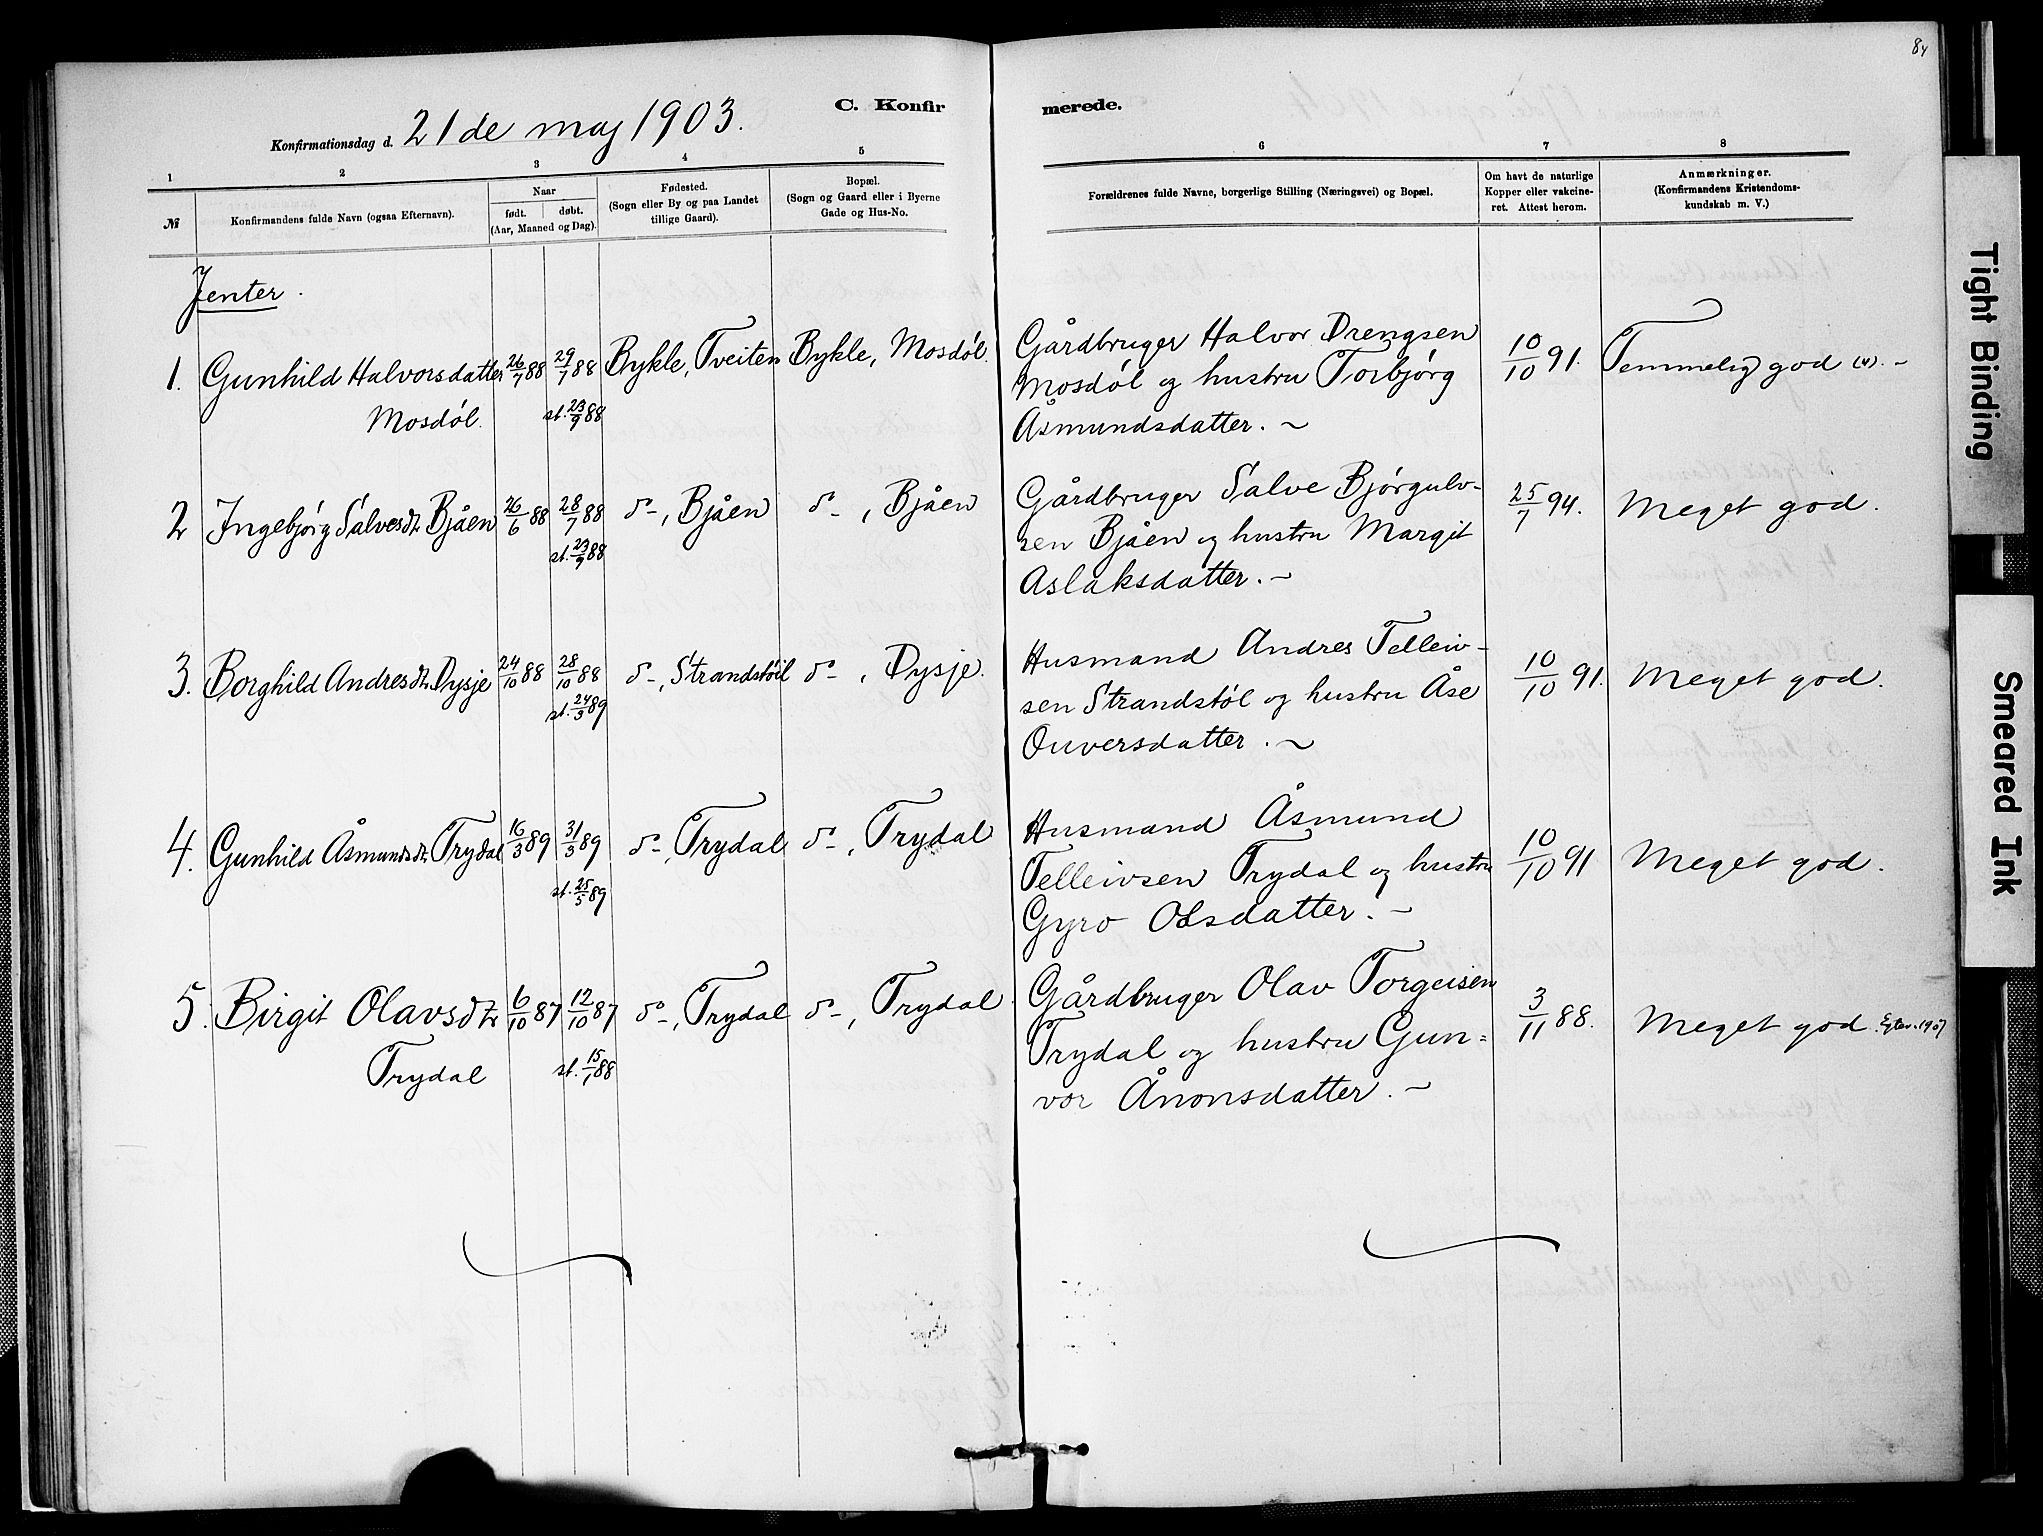 84
C. Konfirmerede.
Konfirmationsdag d. 21de maj 1903.
1 2 3 4 5 6 7 8
№
Konfirmandens fulde Navn (ogsaa Efternavn).
Naar
født. døbt.
(Aar, Maaned og Dag).
Fødested.
(Sogn eller By og paa Landet
tillige Gaard).
Bopæl.
(Sogn og Gaard eller i Byerne
Gade og Hus-No.
Forældrenes fulde Navne, borgerlige Stilling (Næringsvei) og Bopæl.
Om havt de naturlige
Kopper eller vakcine-
ret. Attest herom.
Anmærkninger.
(Konfirmandens Kristendoms-
kundskab m. V.)
Jenter.
1. Gunhild Halvorsdatter 26/7 88 29/7 88 Bykle, Tveiten Bykle, Mosdøl.
Mosdøl. st. 23/9 88
Gårdbruger Halvor Drengsen
Mosdøl og hustru Torbjørg
Åsmundsdatter. ~
10/10 91. Temmelig god (4). –
2 Ingebjørg Salvesdtr Bjåen 26/6 88 28/7 88 do –, Bjåen do –, Bjåen
st. 23/9 88
Gårdbruger Salve Bjørgulv-
sen Bjåen og hustru Margit
Aslaksdatter. ~
25/7 94. Meget god.
3. Borghild Andresdtr. Dysje 24/10 88 28/10 88 do –, Strandstøil do –, Dysje.
st. 24/3 89
Husmand Andres Telleiv-
sen Strandstøl og hustru Åse
Ouversdatter. ~
10/10 91. Meget god.
4. Gunhild Åsmundsdtr. Trydal 16/3 89 31/3 89 do –, Trydal do –, Trydal
st. 25/5 89
Husmand Åsmund
Telleivsen Trydal og hustru
Gyro Olsdatter. –
10/10 91 Meget god.
5. Birgit Olavsdtr 6/10 87 12/10 87 do –, Trydal do –, Trydal
Trydal st. 15/1 88
Gårdbruger Olav Torgeisen
Trydal og hustru Gun=
vor Ånonsdatter. ~
3/11 88. Meget god. 1907
Tight Binding
Smeared Ink